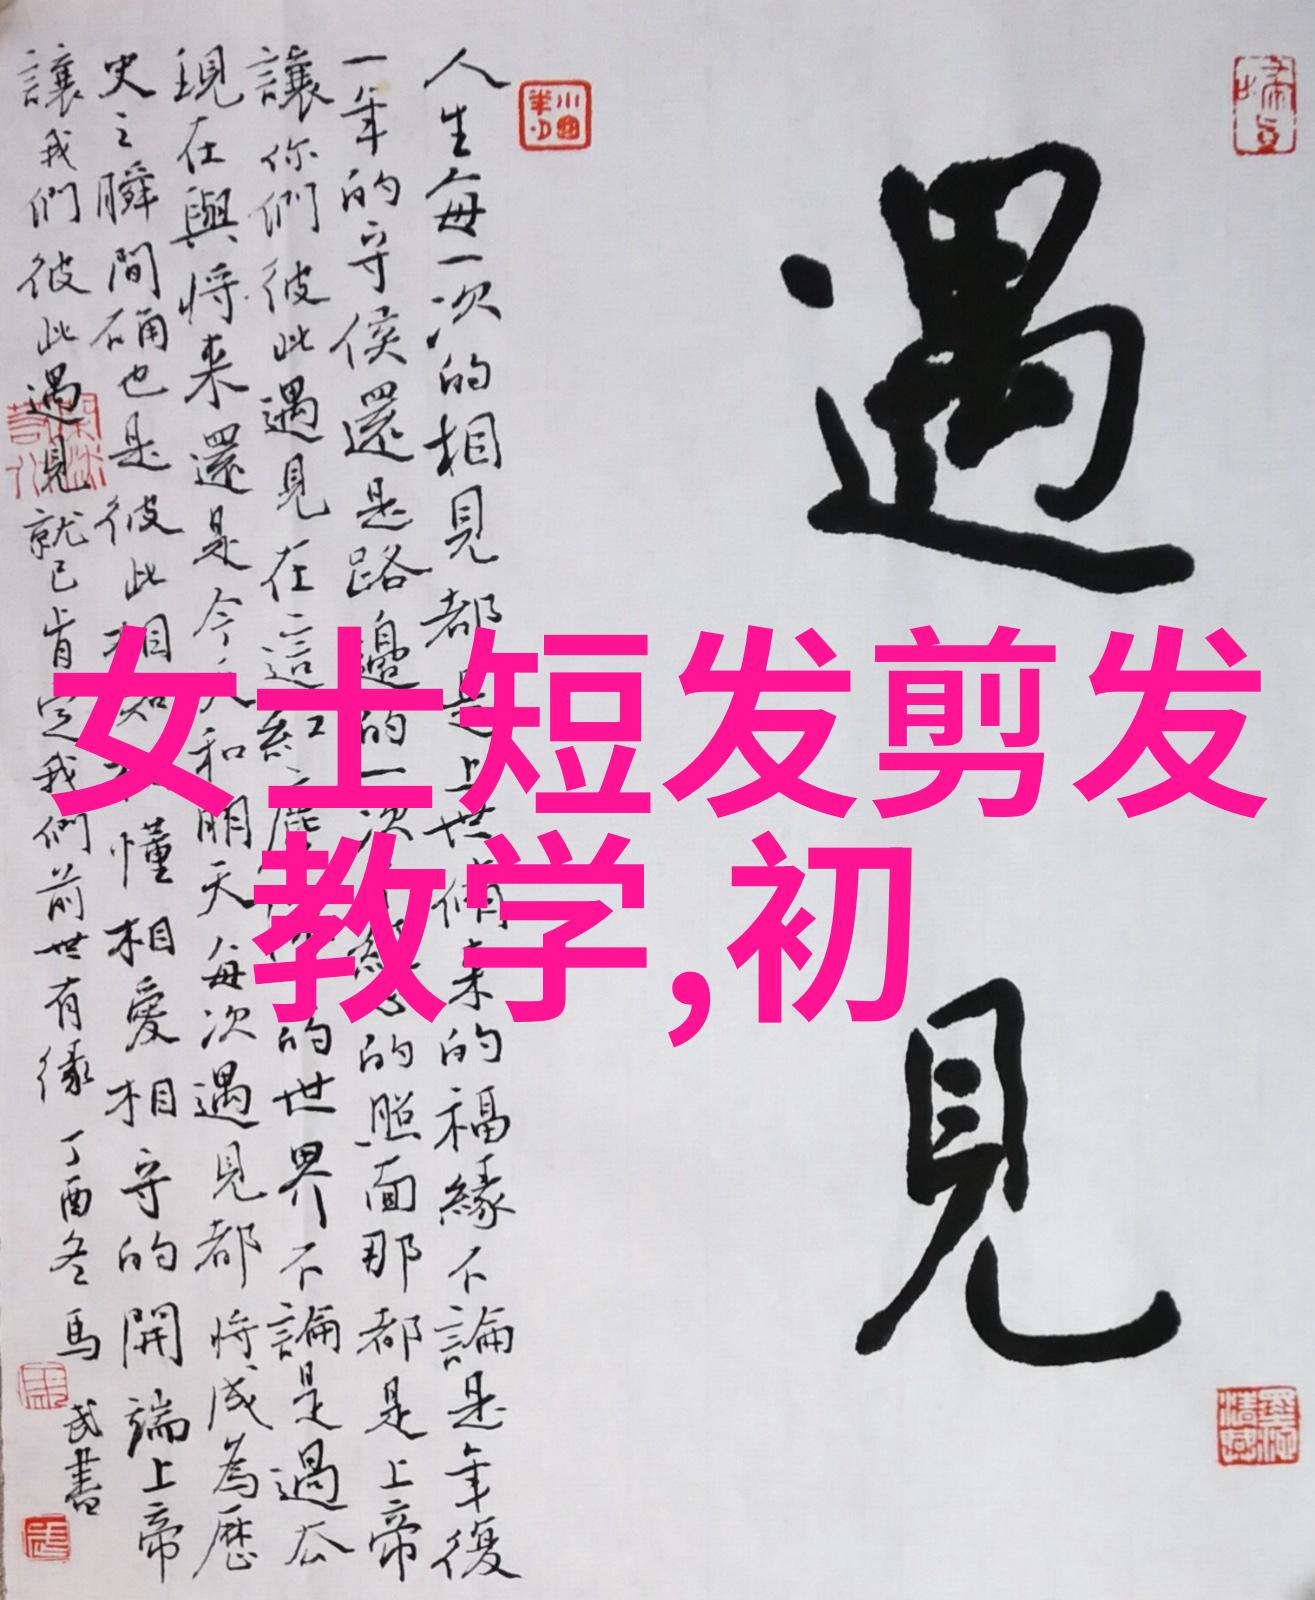 遇見
人生每一次的相見都是上世脩来的福緣不論是年復
一年的守侯還是路邊的一次的照面那都是上帝
讓你們彼此遇見在這紅塵的世界不論是過去
現在與將来還是今天和明天每次遇見都將成為歷
史之瞬間确也是彼此相知相懂相愛相守的開端上帝
讓我們彼此遇見就已肯定我們前世有緣 丁酉冬馬武書
女士短发剪发
教学,初